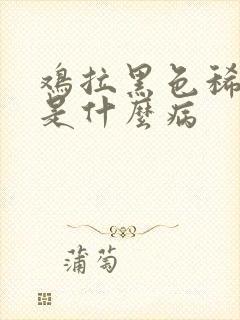 鸡拉黑色稀
是什麼病
蒲萄